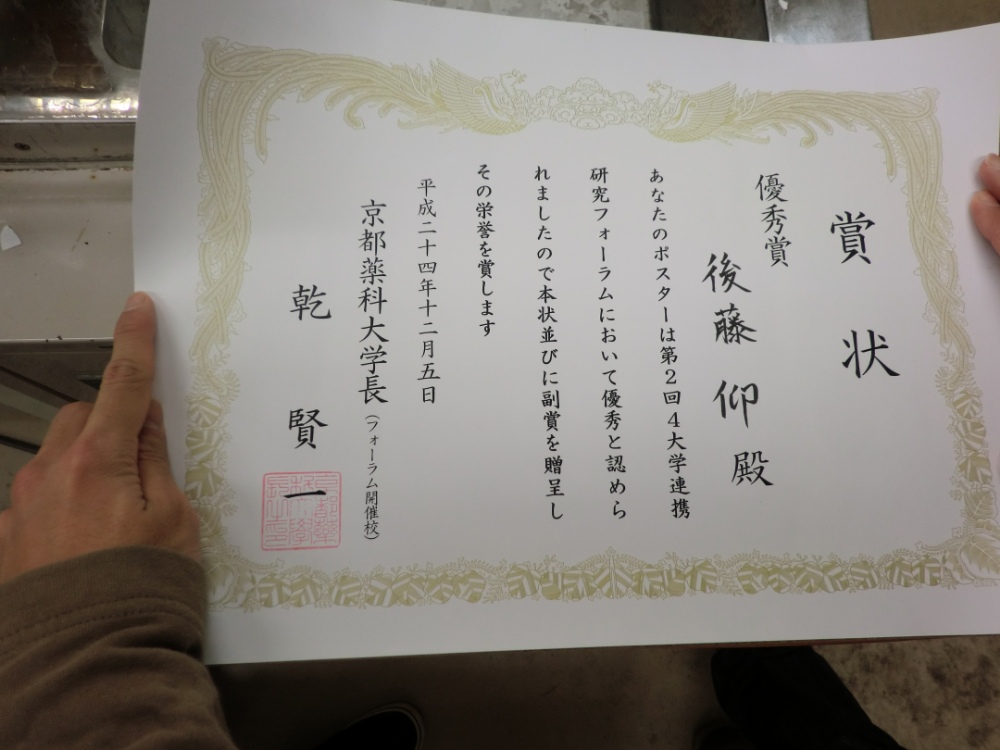 賞状
優秀賞
後藤仰殿
あなたのポスターは第2回4大学連携
研究フォーラムにおいて優秀と認めら
れましたので本状並びに副賞を贈呈し
その栄誉を賞します
平成二十四年十二月五日
京都薬科大学長（フォーラム開催校）
乾賢一